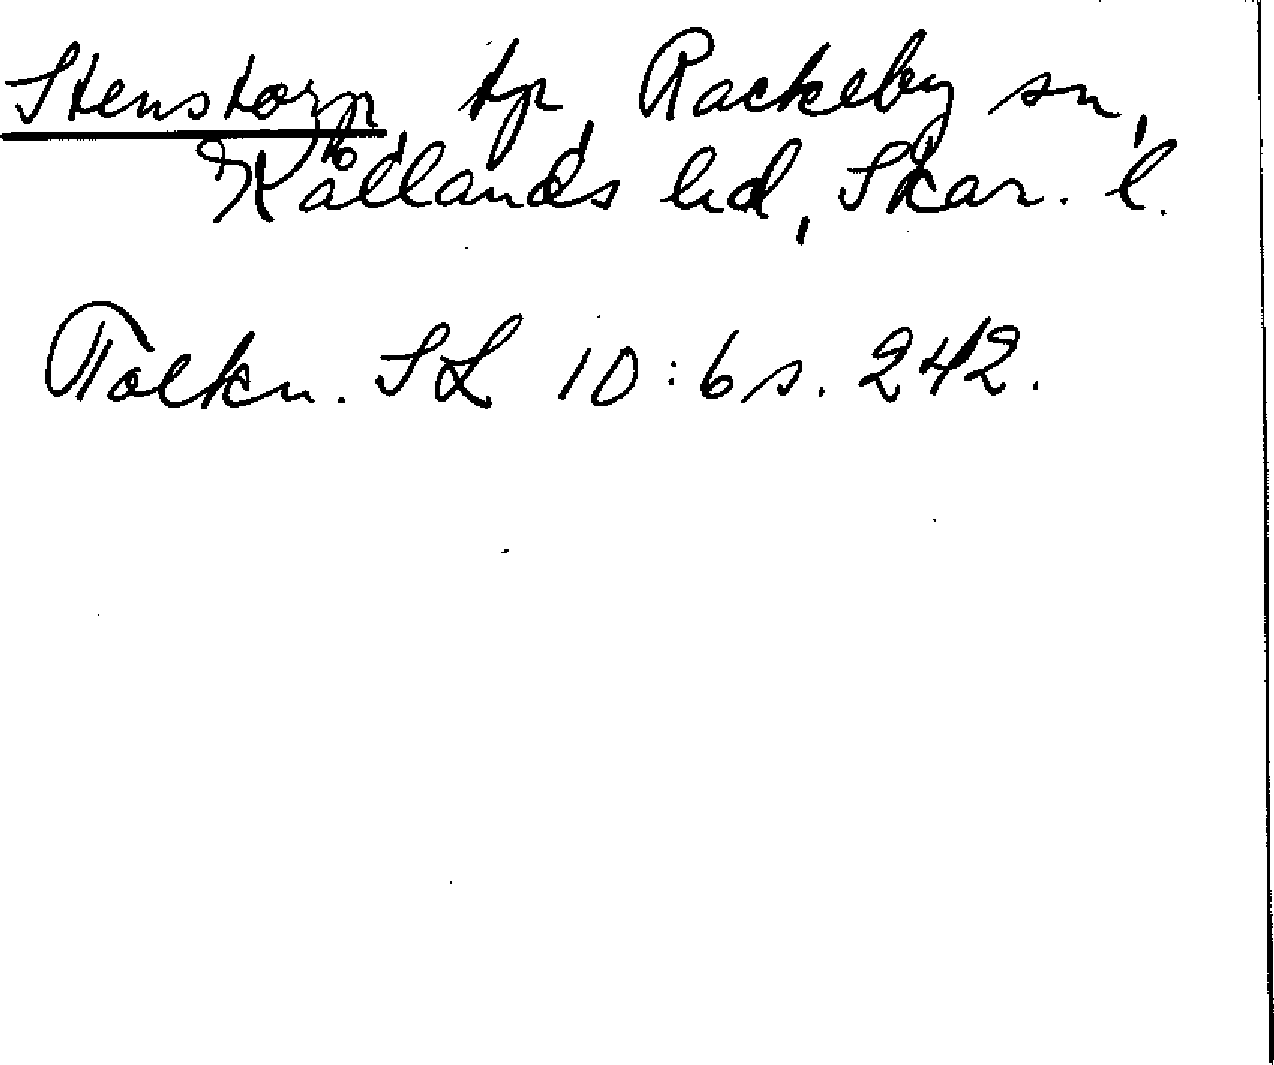 Stenstorp, tp, Rackeby sn,
Kållands hd, Skar. l.
Tolkn. SL 10:6 s. 242.